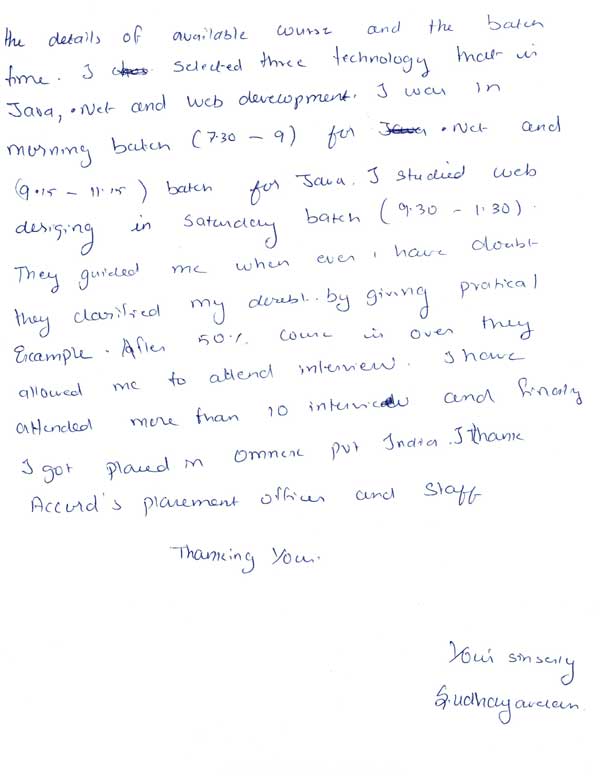 the details of available course and the batch
time. I selected three technology that is
Java, .Net and web development. I was in
morning batch (7.30 - 9) for .Net and
(9.15 - 11.15) batch for Java. I studied web
desiging in Saturday batch (9.30 - 1.30).
They guided me when ever i have doubt
they clarified my doubt. by giving pratical
Example. After 50% course is over they
allowed me to attend interview. I have
attended more than 10 interview and finally
I got placed in pvt India. I thank
Accord's placement officer and staff
Thanking You.
Your sinserly